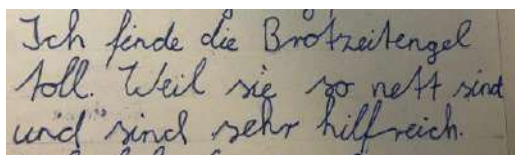 Ich finde die Brotzeitengel
toll. Weil sie so nett sind
und sind sehr hilfreich.